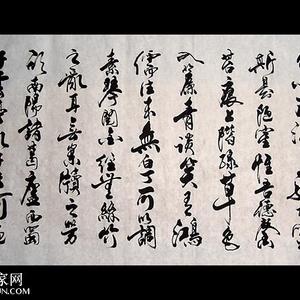 斯是陋室惟吾德馨
苔痕上階綠草色
入簾青談笑有鴻
儒往来無白丁可以調
素琴閱金經無絲竹
之亂耳無案牘之勞
形南陽諸葛廬西蜀
子云亭孔子云何
家网
UN.COM